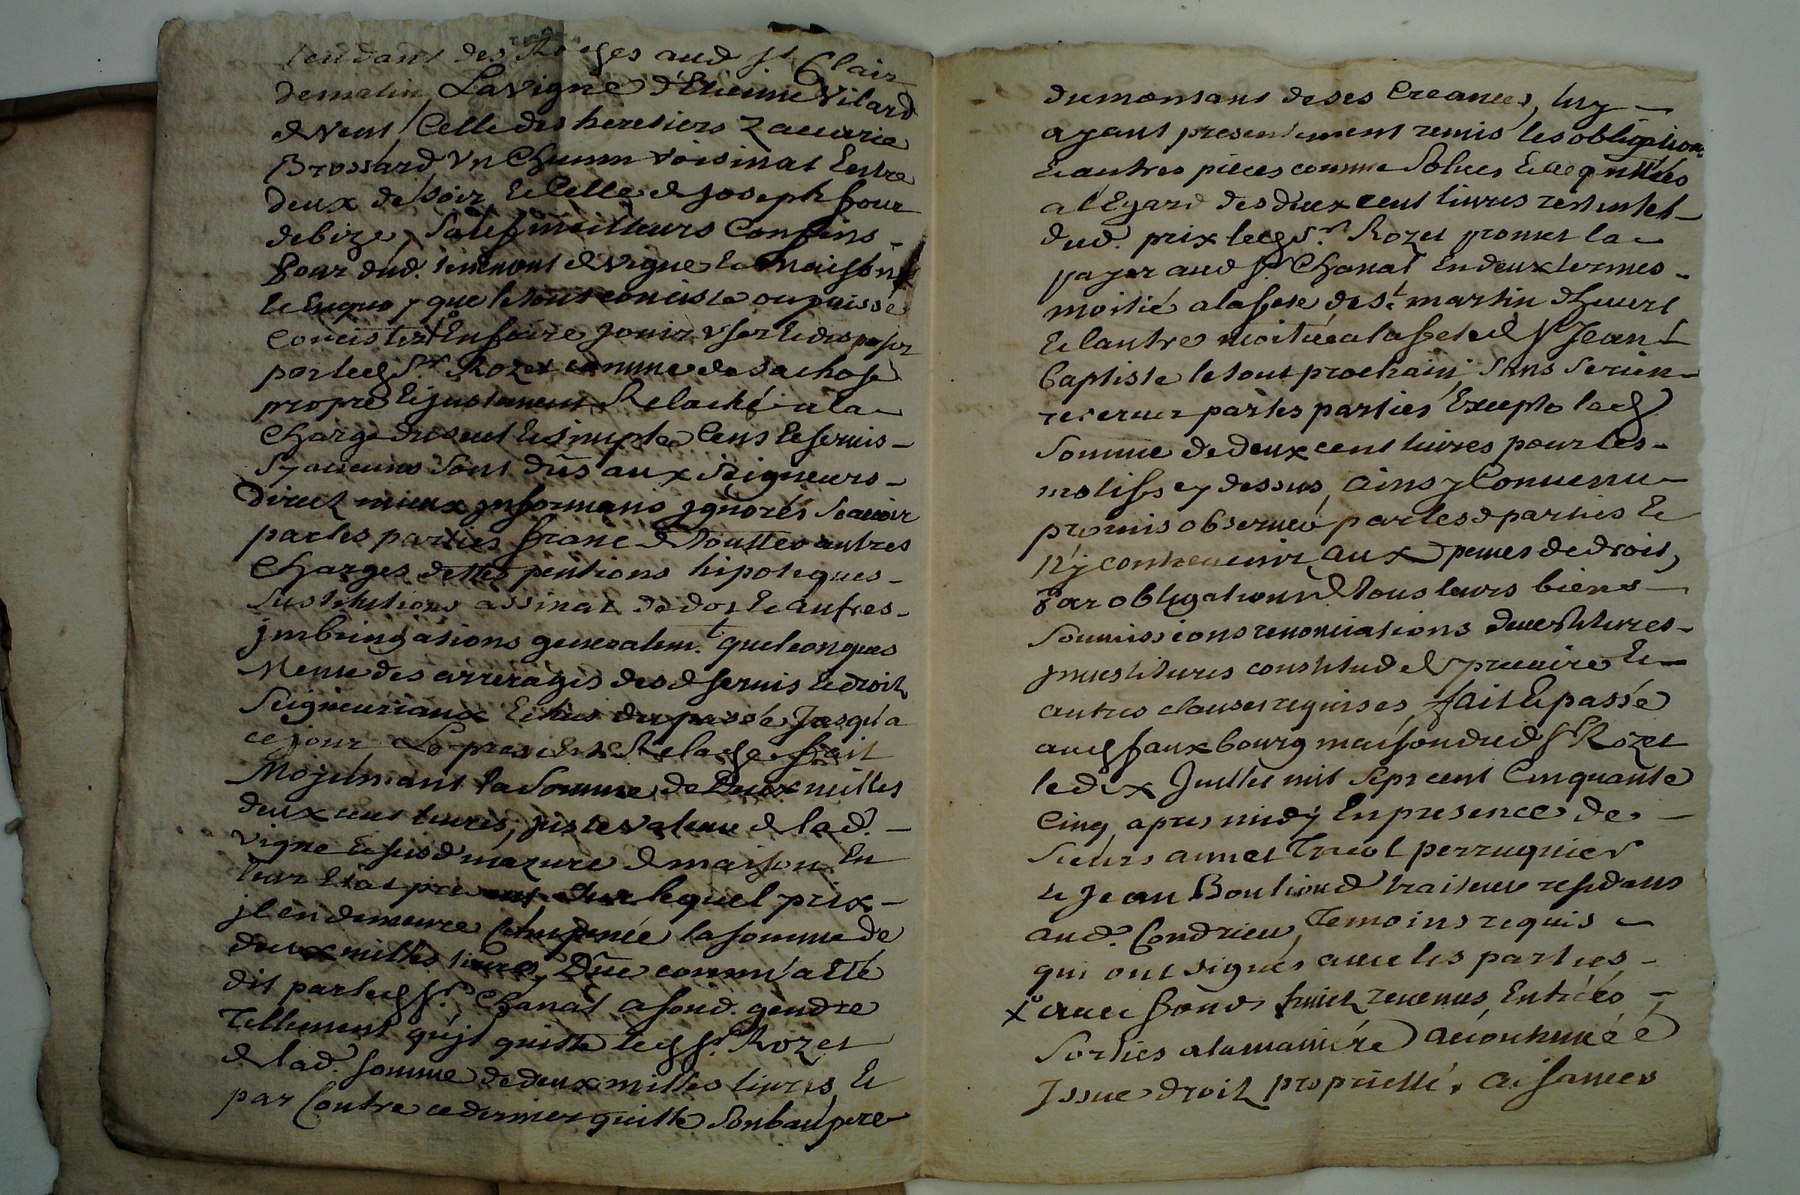 tendant des Roches aud St Clair
de matin, La vigne d'Etienne Vilard
de vent, Celle des heretiers Zacarie
Brossard Un Chemin voisinal Entre
deux de soir, Et Celle de Joseph four
de bize, Sales meilleurs Confins -
Pour dud. tenement de vigne Et maison
que le tout conciste ou puisse
Concister + Enfaire jouir user Et disposer
par led Sr. Rozet comme de sa chose
propre Et justement Relaché a la
Charge du seul Et simple Cens Et servis -
Sy aucuns sont dûs aux Seigneurs -
Direct mieux informans ignorés Scavoir
par les parties franc de touttes autres
Charges dettes pentions hipoteques -
Sustitutions assinat de dot Et autres -
jmbringations generalemt. quelconques
Meme des arrerages desd servis Et droits
Seigneuriaux Echus du passé Jusqu'a
ce jour Le present Relache fait
Mojenant la Somme de Deux milles
deux cent livres, juste valeur de lad. -
vigne Et susd mazure de maison En
leur Etat present Sur lequel prix -
jl en demeure Compensée la somme de
deux milles livres, Dûe comm'a été
dit par led Sr. Chanal a sond. gendre
Tellement qu'jl quitte led Sr. Rozet
de lad. somme de deux milles livres, Et
par Contre ce dernier quitte son beaupere
du montant de ses Creances, luy -
ayant presentement remis les obligations
Et autres pieces comme Solues Et acquittées
a l'Egard des deux cent livres restantes -
dud. prix led Sr. Rozet promet la -
payer aud Sr Chanal En deux termes -
moitié a la fete de St. martin d'hivert
Et l'autre moitiée a la fete de St Jean -
Baptiste le tout prochain, Sans Se rien -
reserver par les parties Excepte lad
Somme de deux cent livres pour les -
motifs cy dessus, Ainsy Convenu -
promis observer par lesd parties Et
n'y contrevenir, aux peines de droit,
Par obligations de tous leurs biens -
Soumissions renonciations devestitures -
jnvestitures constitud de precaire Et -
autres clauses requises fait Et passé
aud fauxbourg maison dud Sr Rozet
le dix Juillet mil sept cent Cinquante
Cinq, apres midy En presence de -
Sieurs annet Tracol perruquier
Et Jean Boutioud traiteur residans
aud. Condrieu, Temoins requis -
qui ont signés avec les parties -
+ avec fonds fruits revenus Entrées -
Sorties a la maniére accoutumée é
Issue droit proprietté, aisances